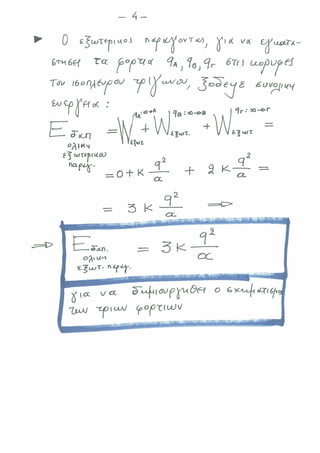 - 4 -
► Ο εξωτερικος παραγοντας, για να εγκατα-
στησει τα φορτια qA, qB, qΓ στις κορυφες
του ισοπλευρου τριγωνου, ξοδεψε συνολικη
ενεργεια :
E δαπ. ολικη εξωτερικου παραγ. = W εξωτ. qA:∞→A + W εξωτ. qB:∞→B + W εξωτ. qΓ:∞→Γ =
= 0 + K q²/α + 2 K q²/α =
= 3 K q²/α ⇒
⇒ E δαπ. ολικη εξωτ. παραγ. = 3 K q²/α
για να δημιουργηθει ο σχηματισμος
των τριων φορτιων